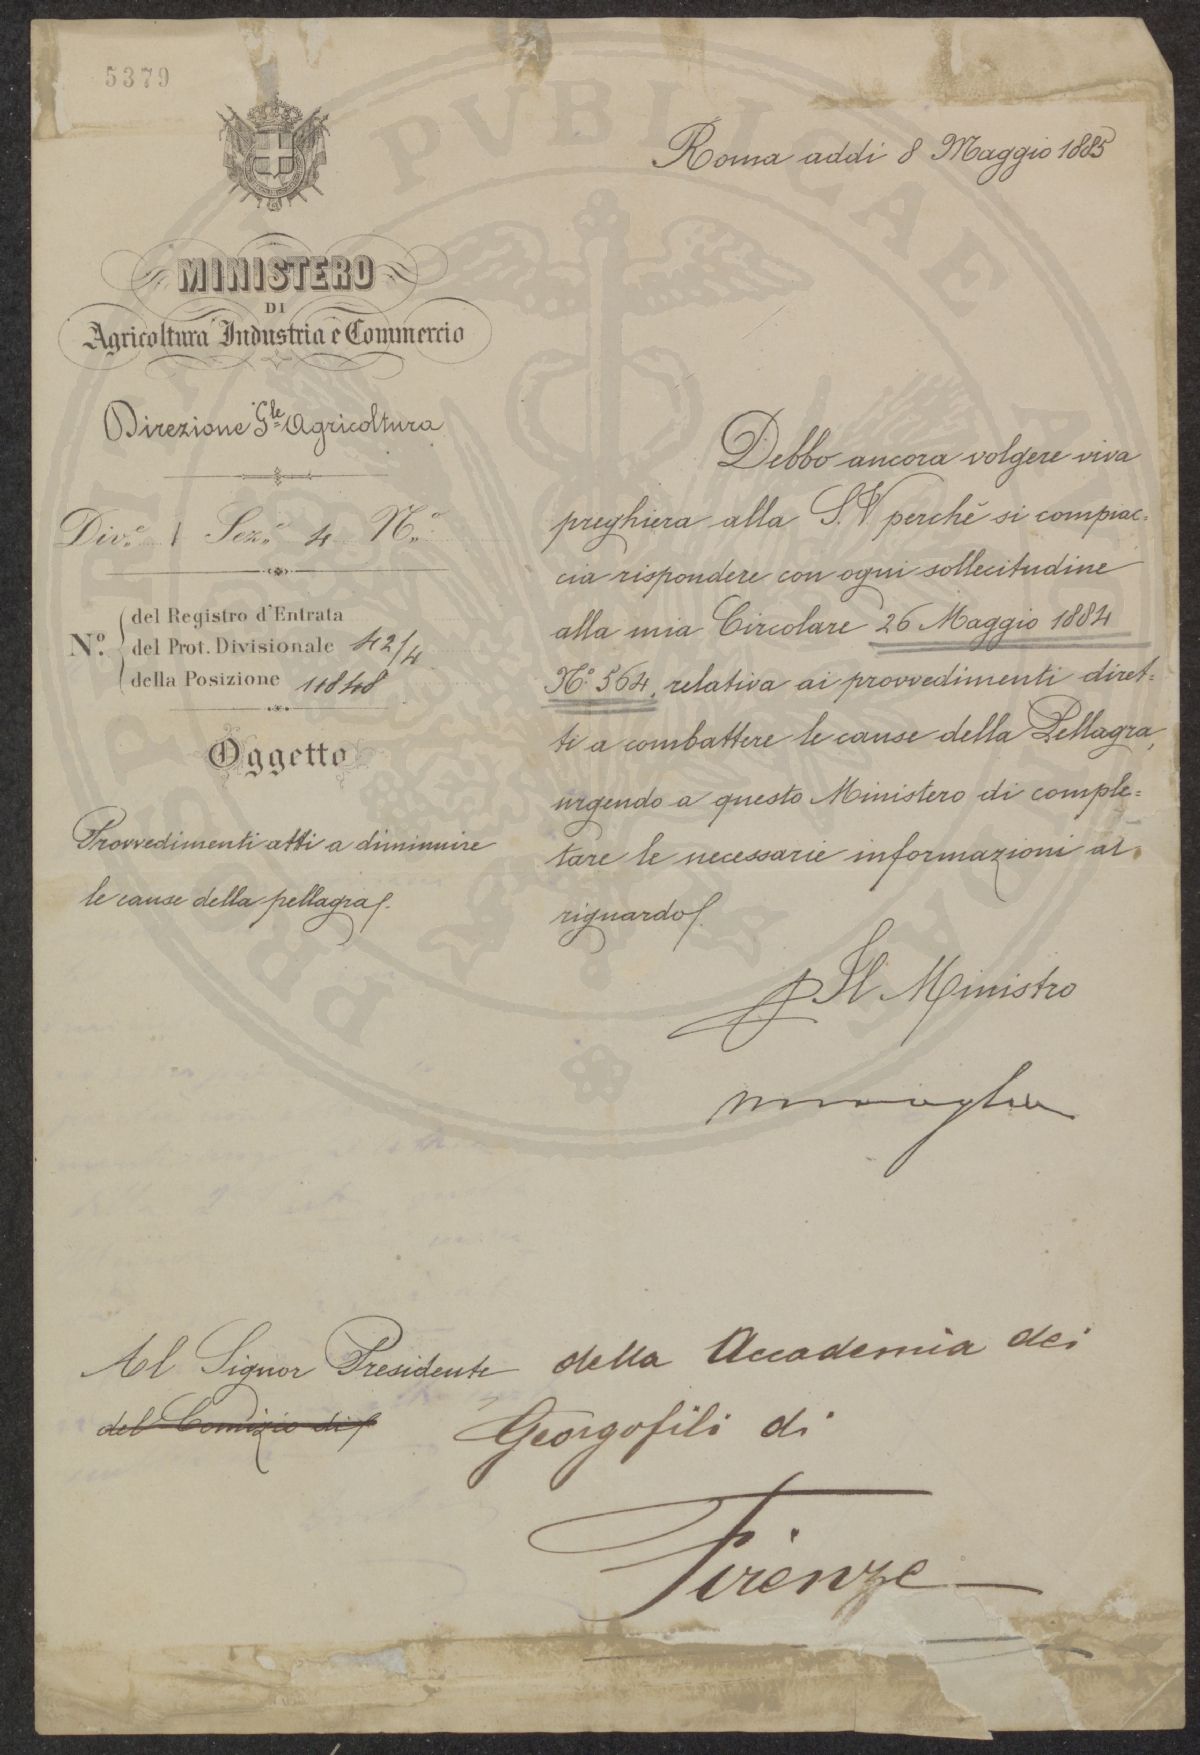 5379
Roma addì 8 Maggio 1885
MINISTERO
DI
Agricoltura Industria e Commercio
Direzione G.le Agricoltura
Div.e 1 Sez.e 4 N.o
N.o
del Registro d'Entrata
del Prot. Divisionale 42/4
della Posizione 11848
Oggetto
Provvedimenti atti a diminuire
le cause della pellagra.
Debbo ancora volgere viva
preghiera alla S.V. perchè si compiac=
cia rispondere con ogni sollecitudine
alla mia Circolare 26 Maggio 1884
N.o 564, relativa ai provvedimenti diret=
ti a combattere le cause della Pellagra,
urgendo a questo Ministero di comple=
tare le necessarie informazioni al
riguardo.
p Il Ministro
Miraglia
Al Signor Presidente della Accademia dei
del Comizio di Georgofili di
Firenze